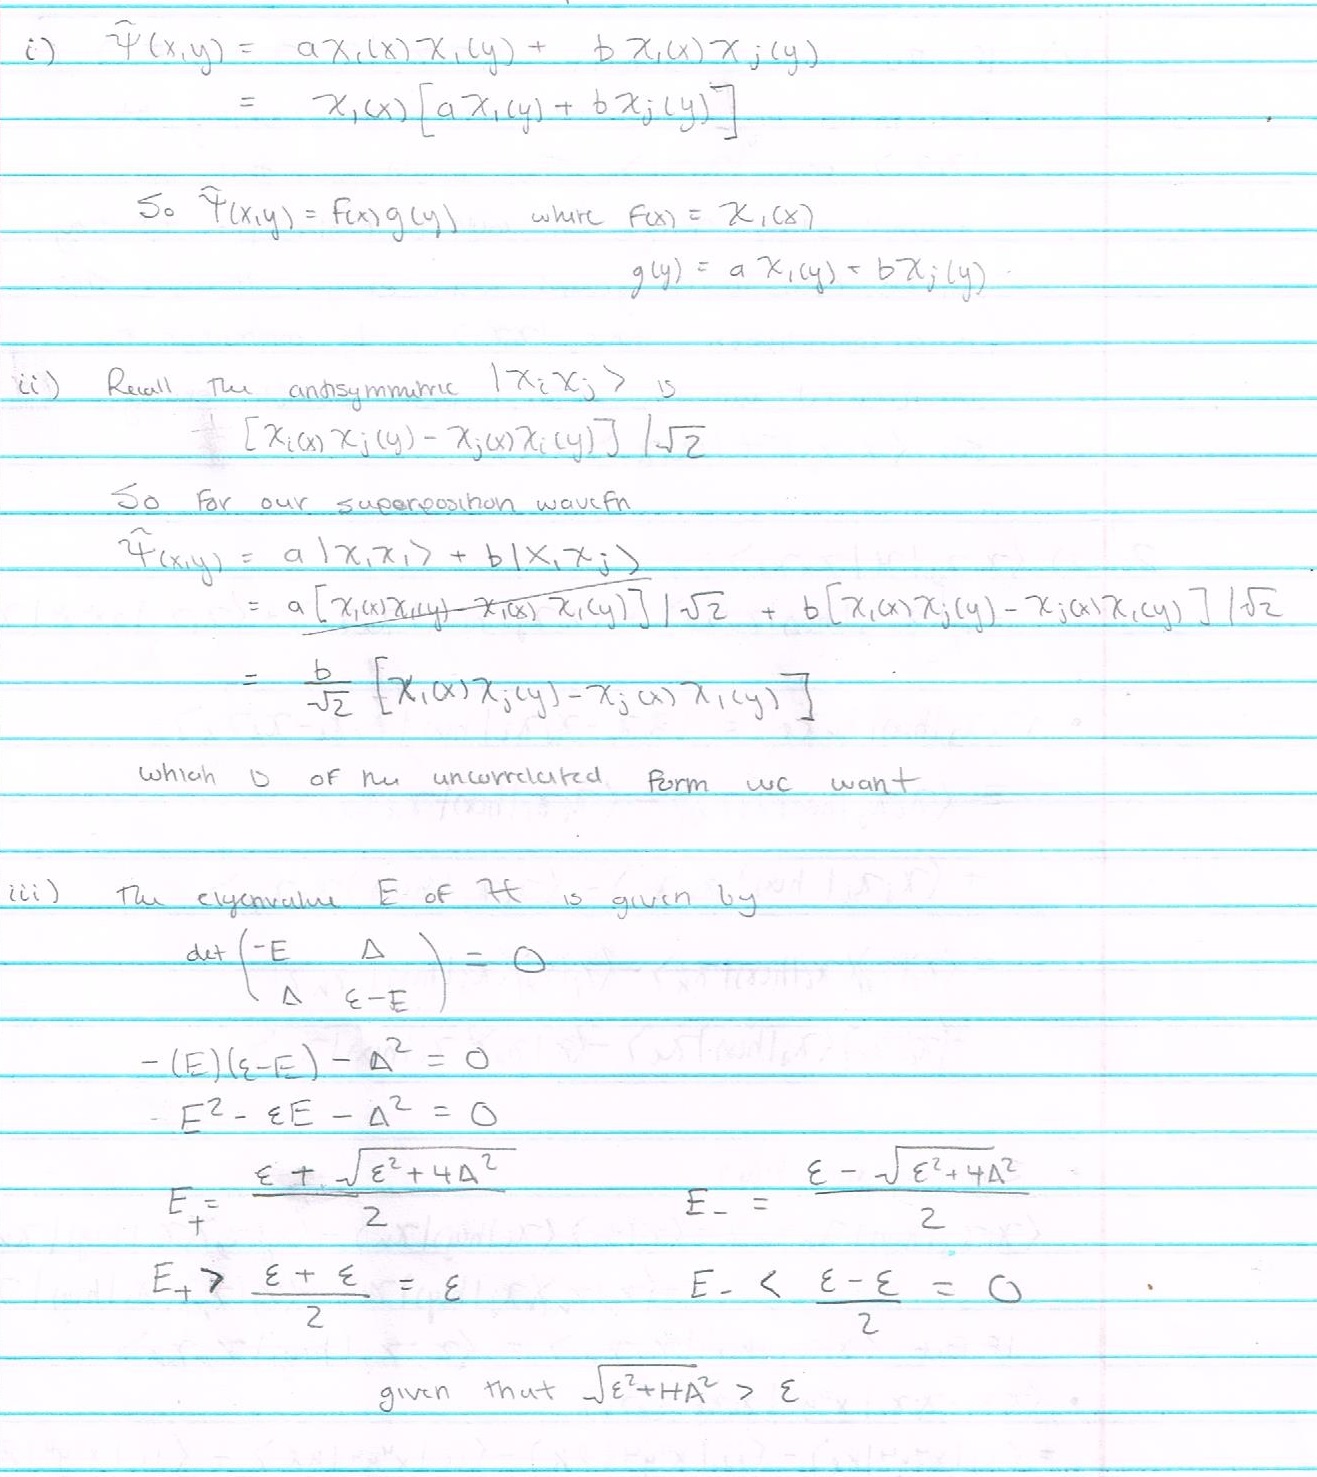 i) Ψ̃(x,y) = aχ₁(x)χ₁(y) + bχ₁(x)χⱼ(y)
= χ₁(x)[aχ₁(y) + bχⱼ(y)]
So Ψ̃(x,y) = f(x)g(y) where f(x) = χ₁(x)
g(y) = aχ₁(y) + bχⱼ(y)
ii) Recall the antisymmetric |χᵢχⱼ> is
[χᵢ(x)χⱼ(y) - χⱼ(x)χᵢ(y)] /√2
So for our superposition wavefn
Ψ̃(x,y) = a|χ₁χ₁> + b|χ₁χⱼ>
= a[χ₁(x)χ₁(y) - χ₁(x)χ₁(y)] /√2 + b[χ₁(x)χⱼ(y) - χⱼ(x)χ₁(y)] /√2
= b/√2 [χ₁(x)χⱼ(y) - χⱼ(x)χ₁(y)]
which is of the uncorrelated form we want
iii) The eigenvalue E of H is given by
det (-E Δ
Δ ε-E) = 0
-(E)(ε-E) - Δ² = 0
E² - εE - Δ² = 0
E₊ = (ε + √ε²+4Δ²)/2 E₋ = (ε - √ε²+4Δ²)/2
E₊ > (ε + ε)/2 = ε E₋ < (ε - ε)/2 = 0
given that √ε²+4Δ² > ε